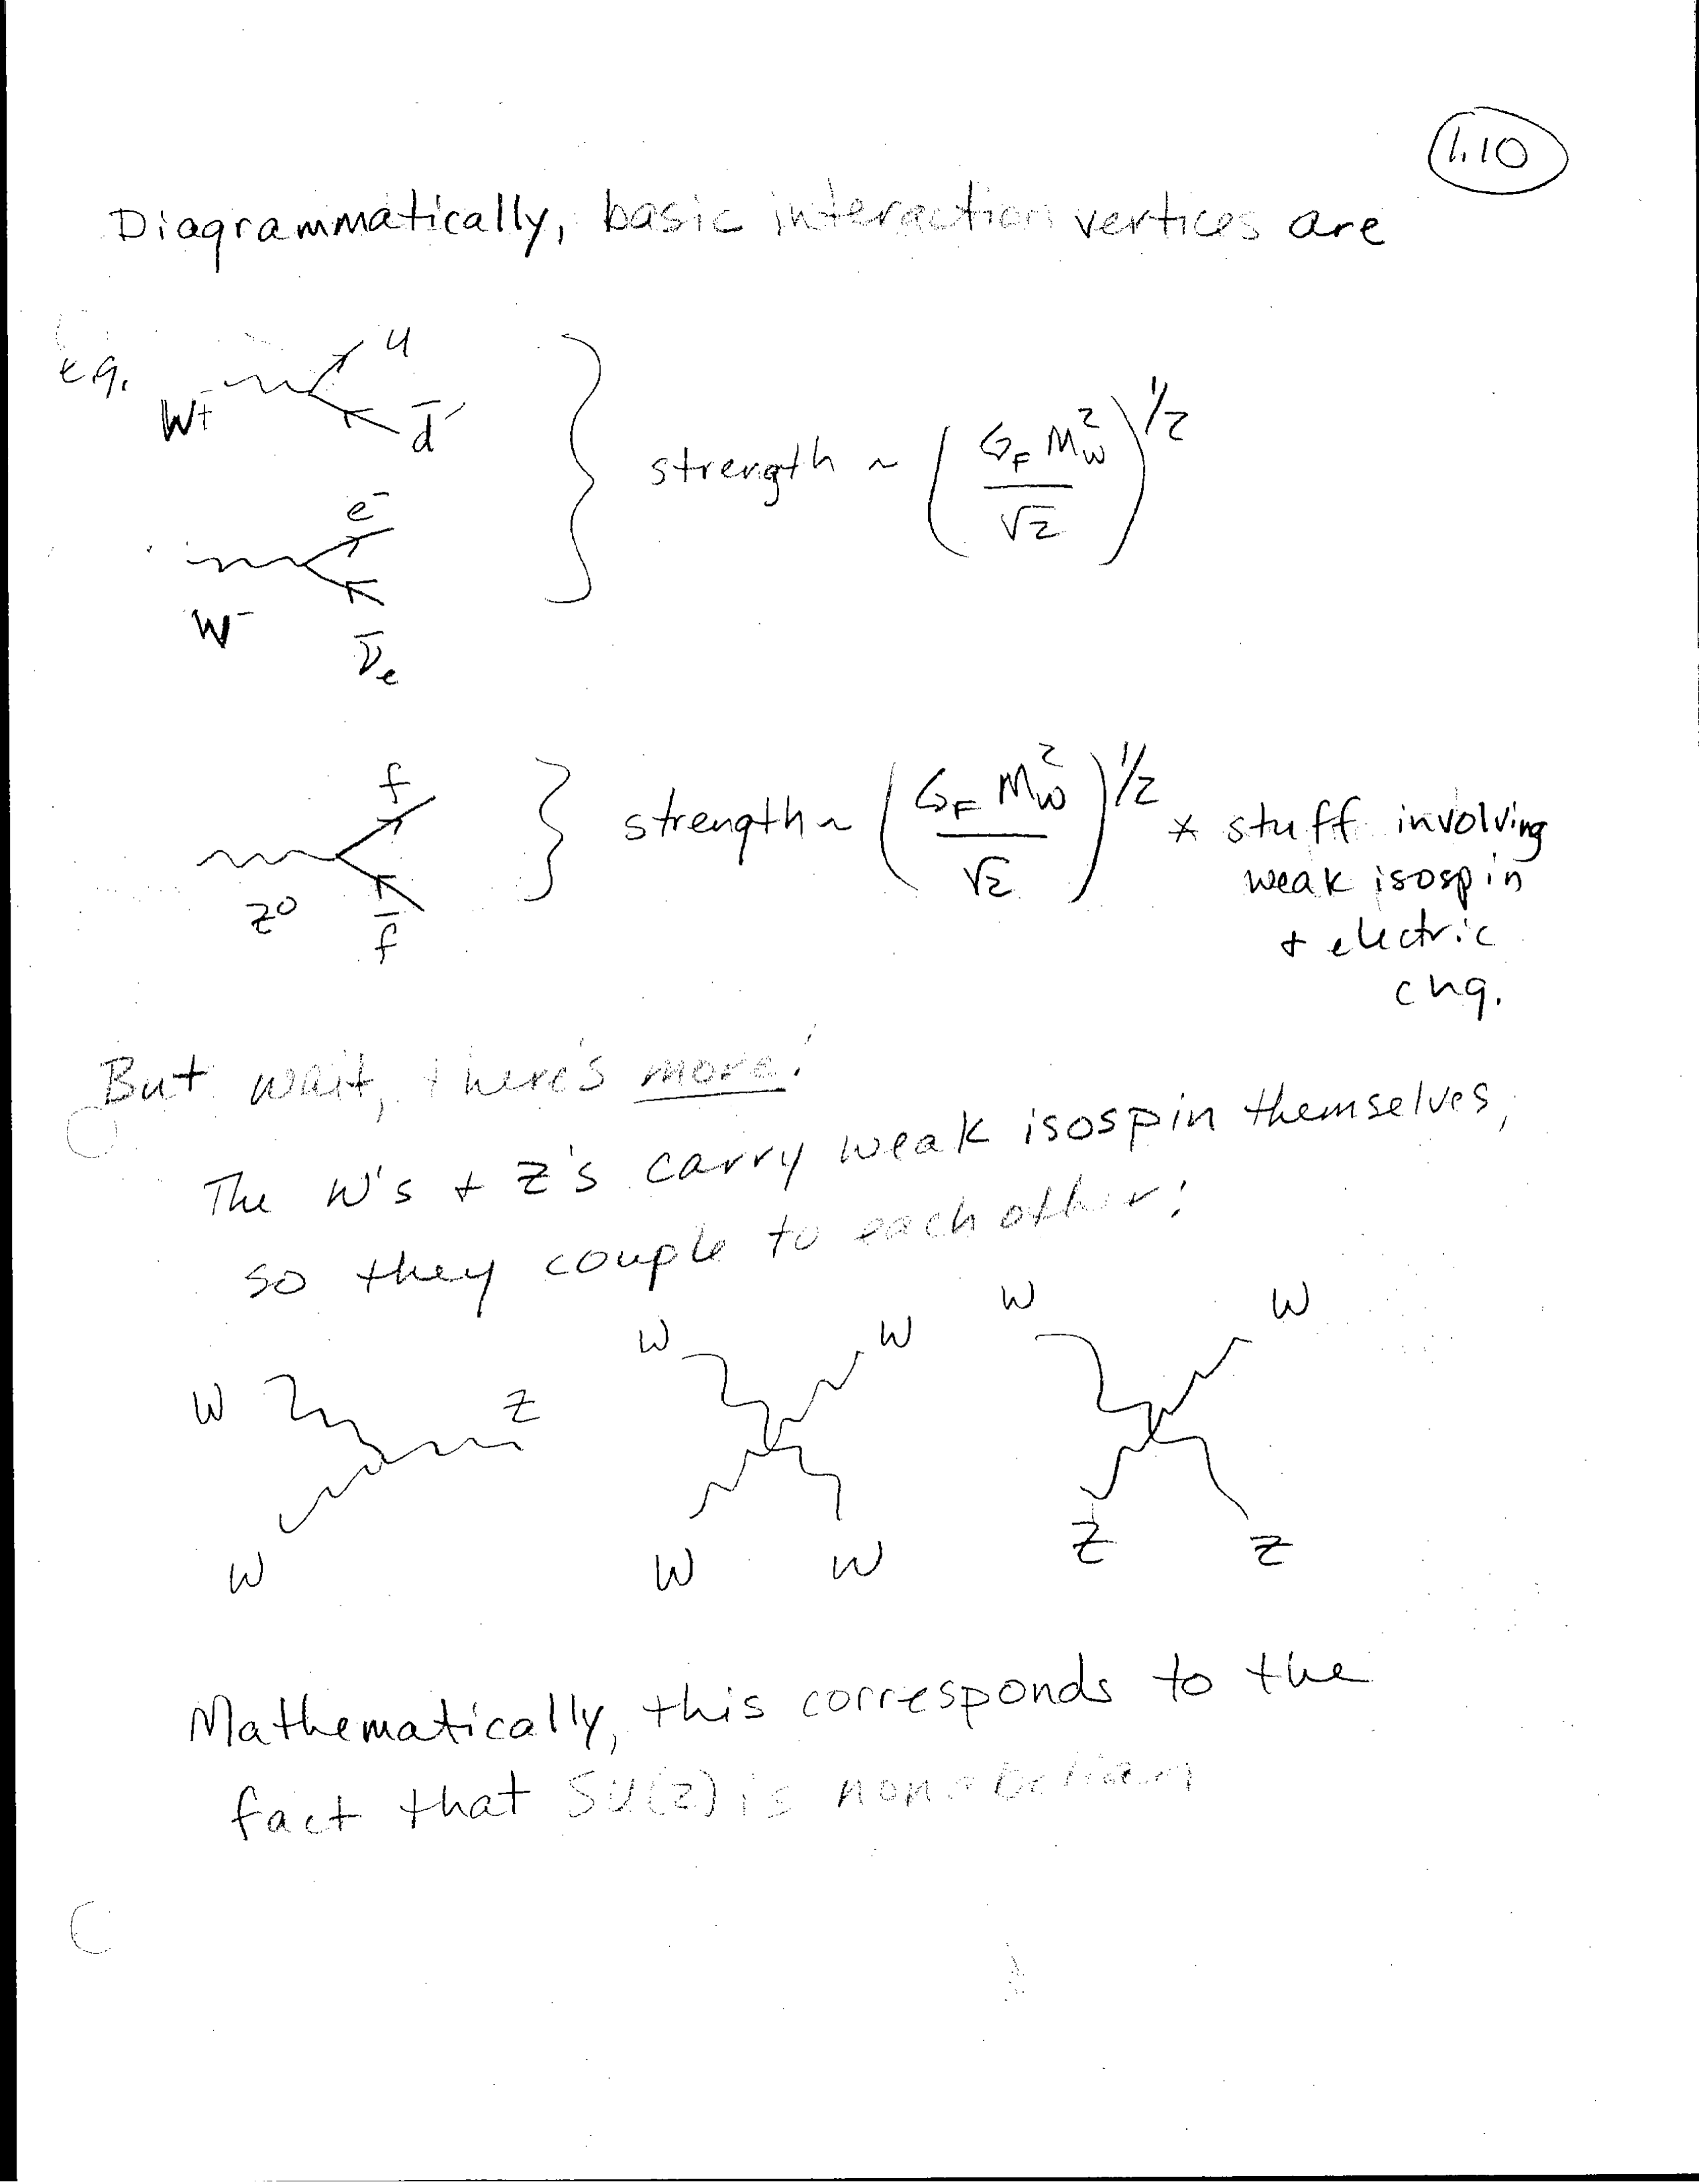 1.10
Diagrammatically, basic interaction vertices are
e.g.
u
W+
d̄'
strength ~ (G_F M_W^2 / √2)^1/2
e-
W-
ν̄e
f
strength ~ (G_F M_W^2 / √2)^1/2 * stuff involving
weak isospin
+ electric
chg.
Z0
f̄
But wait, there's more!
The W's + Z's carry weak isospin themselves,
so they couple to each other:
W Z W
W W W W
W W Z Z
Mathematically, this corresponds to the
fact that SU(2) is nonabelian